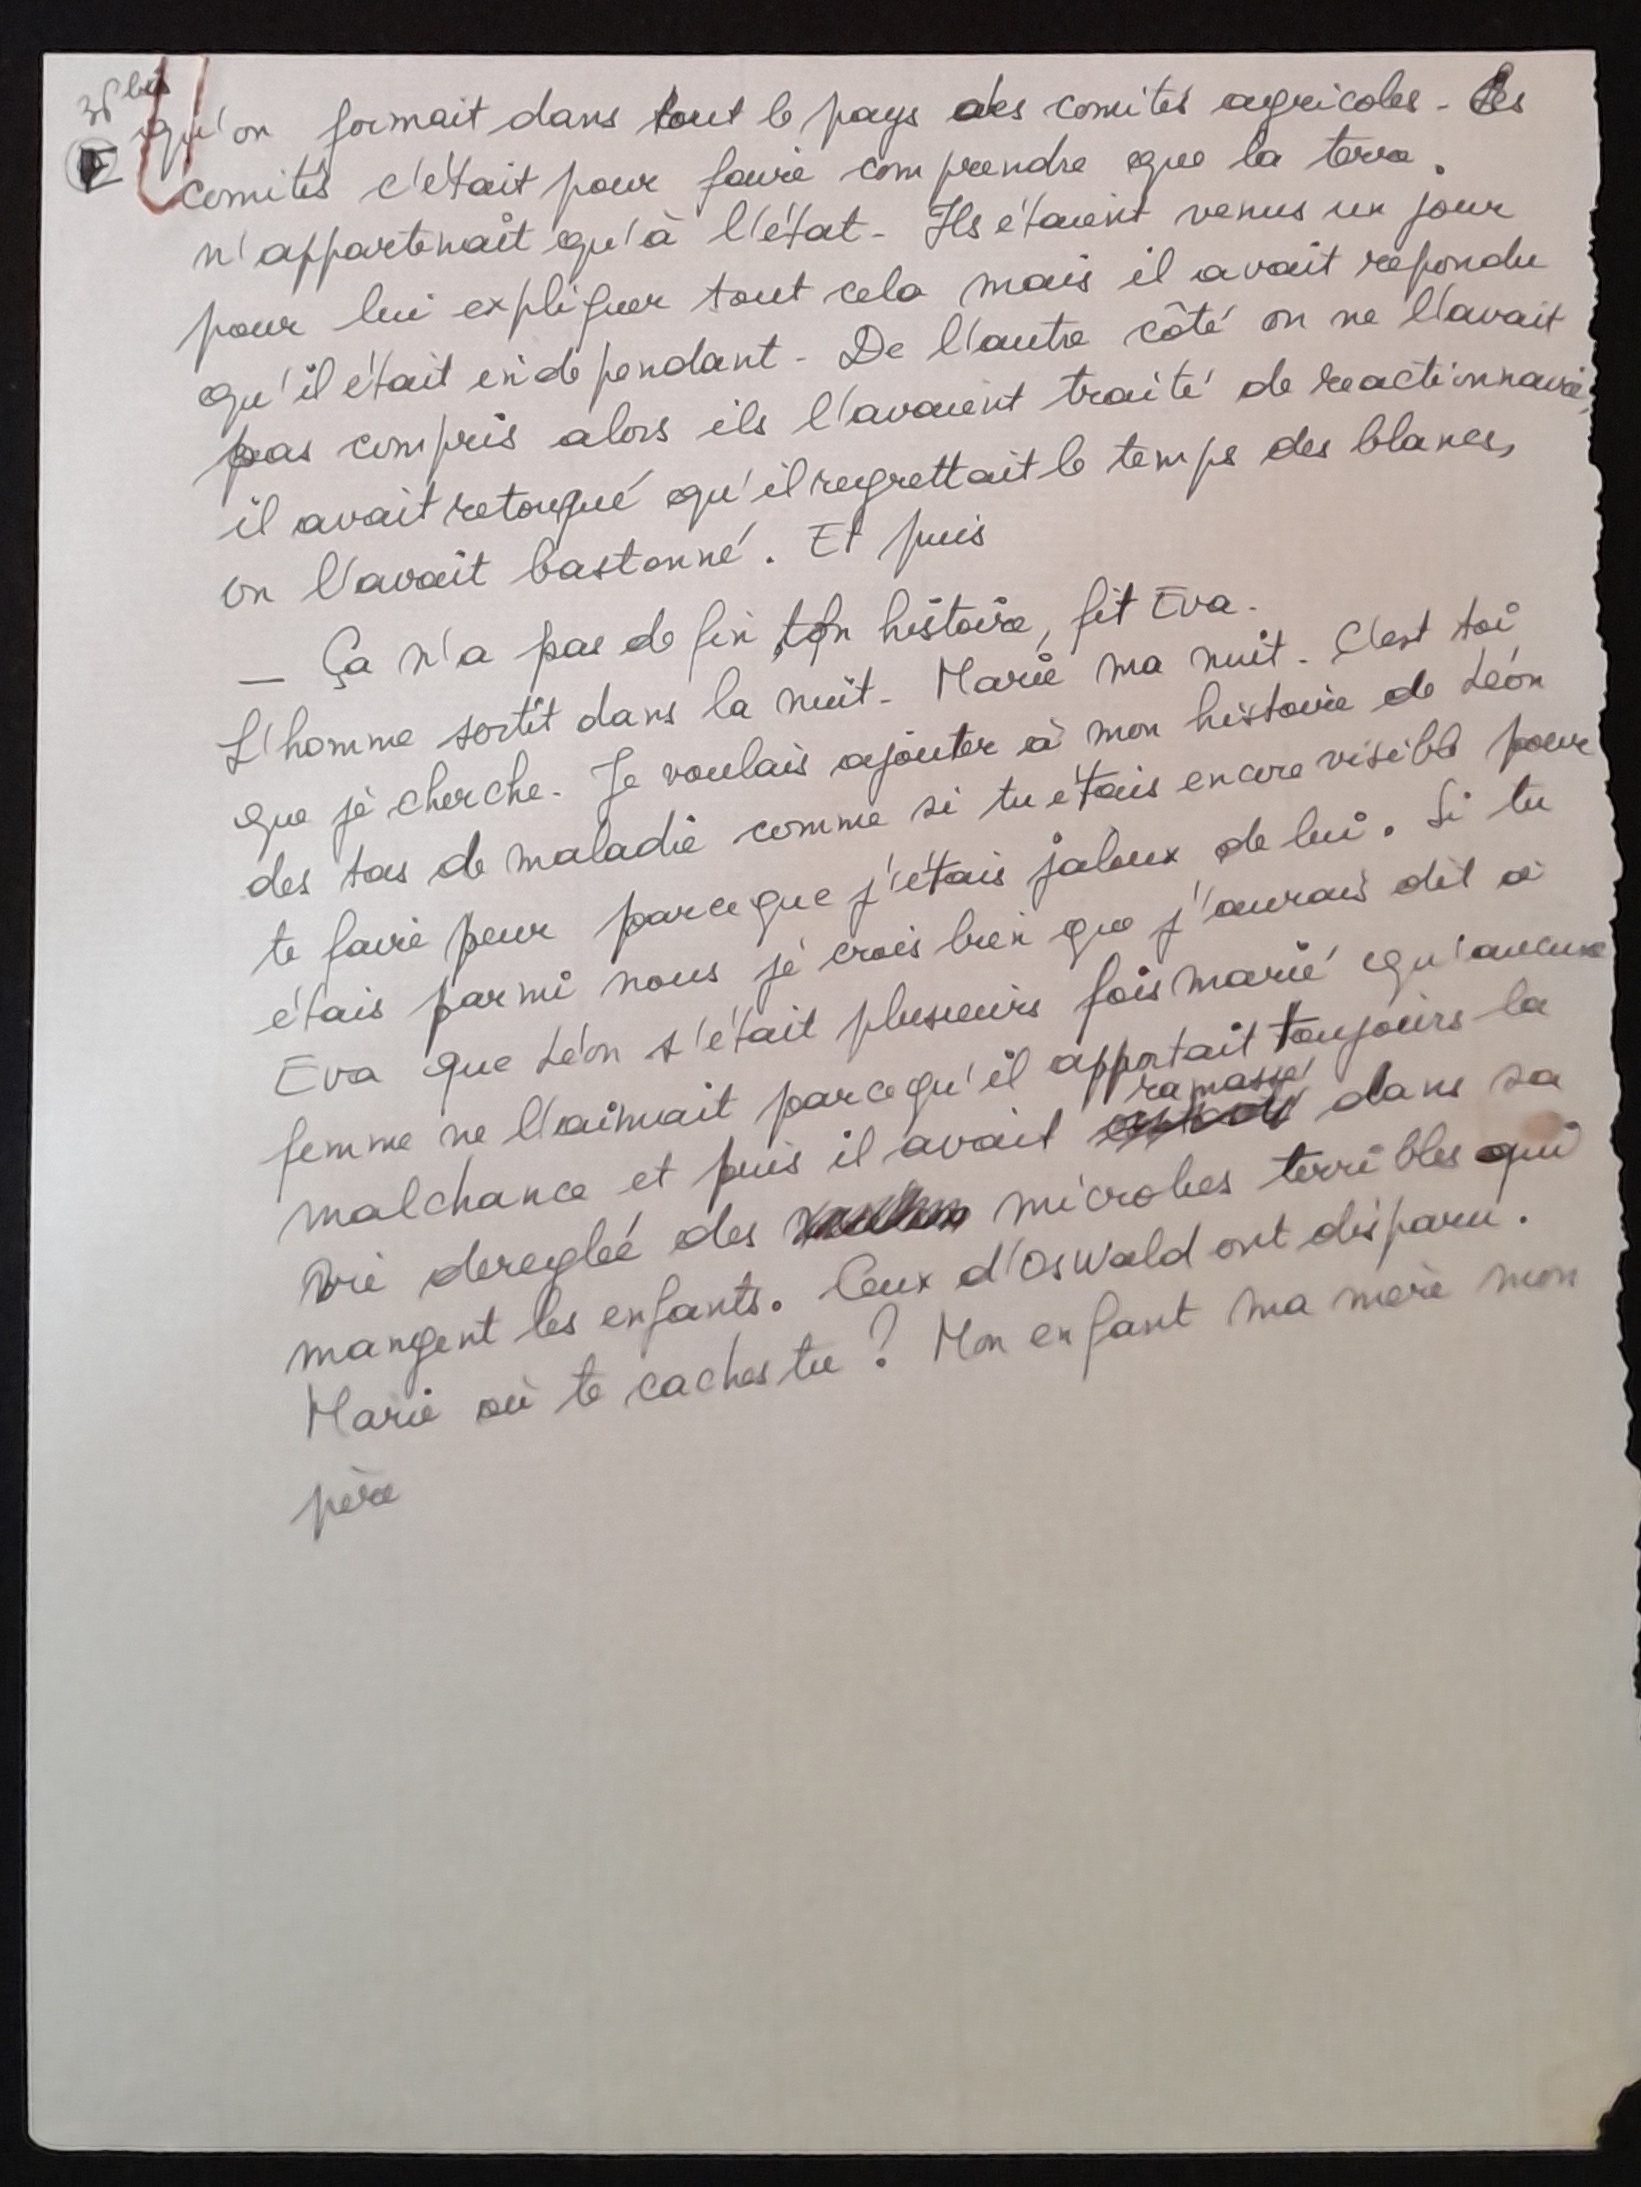 36 bis
E
qu'on formait dans tout le pays des comités agricoles - Les
comités c'était pour faire comprendre que la terre.
n'appartenait qu'à l'état - Ils étaient venus un jour
pour lui expliquer tout cela mais il avait repondu
qu'il était indépendant - De l'autre côté on ne l'avait
pas compris alors ils l'avaient traité de reactionnaire,
il avait retorqué qu'il regrettait le temps des blancs,
on l'avait bastonné. Et puis
— Ça n'a pas de fin, ton histoire, fit Eva -
L'homme sortit dans la nuit - Marie ma nuit - C'est toi
que je cherche - Je voulais ajouter à mon histoire de Léon
des tas de maladie comme si tu étais encore visible pour
te faire peur parceque j'étais jaloux de lui. Si tu
étais parmi nous je crois bien que j'aurais dit à
Eva que Léon s'était plusieurs fois marié qu'aucune
femme ne l'aimait parcequ'il apportait toujours la
malchance et puis il avait ramassé dans sa
vie dereglée des microbes terribles qui
mangent les enfants. Ceux d'Oswald ont disparu.
Marie où te caches tu ? Mon enfant ma mère mon
père